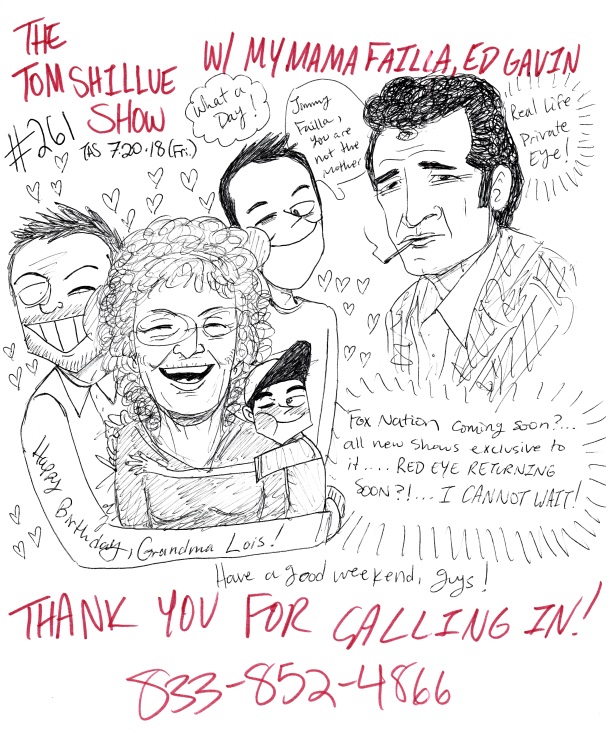 THE
TOM SHILLUE
SHOW
W/ MY MAMA FAILLA, ED GAVIN
#261
TAS 7.20.18 (Fri.)
What a
Day!
Jimmy
Failla,
you are
not the
mother
Real Life
Private
Eye!
Fox Nation coming soon?...
all new shows exclusive to
it.... RED EYE RETURNING
SOON?!... I CANNOT WAIT!
Happy Birthday, Grandma Lois!
Have a good weekend, guys!
THANK YOU FOR CALLING IN!
833-852-4866